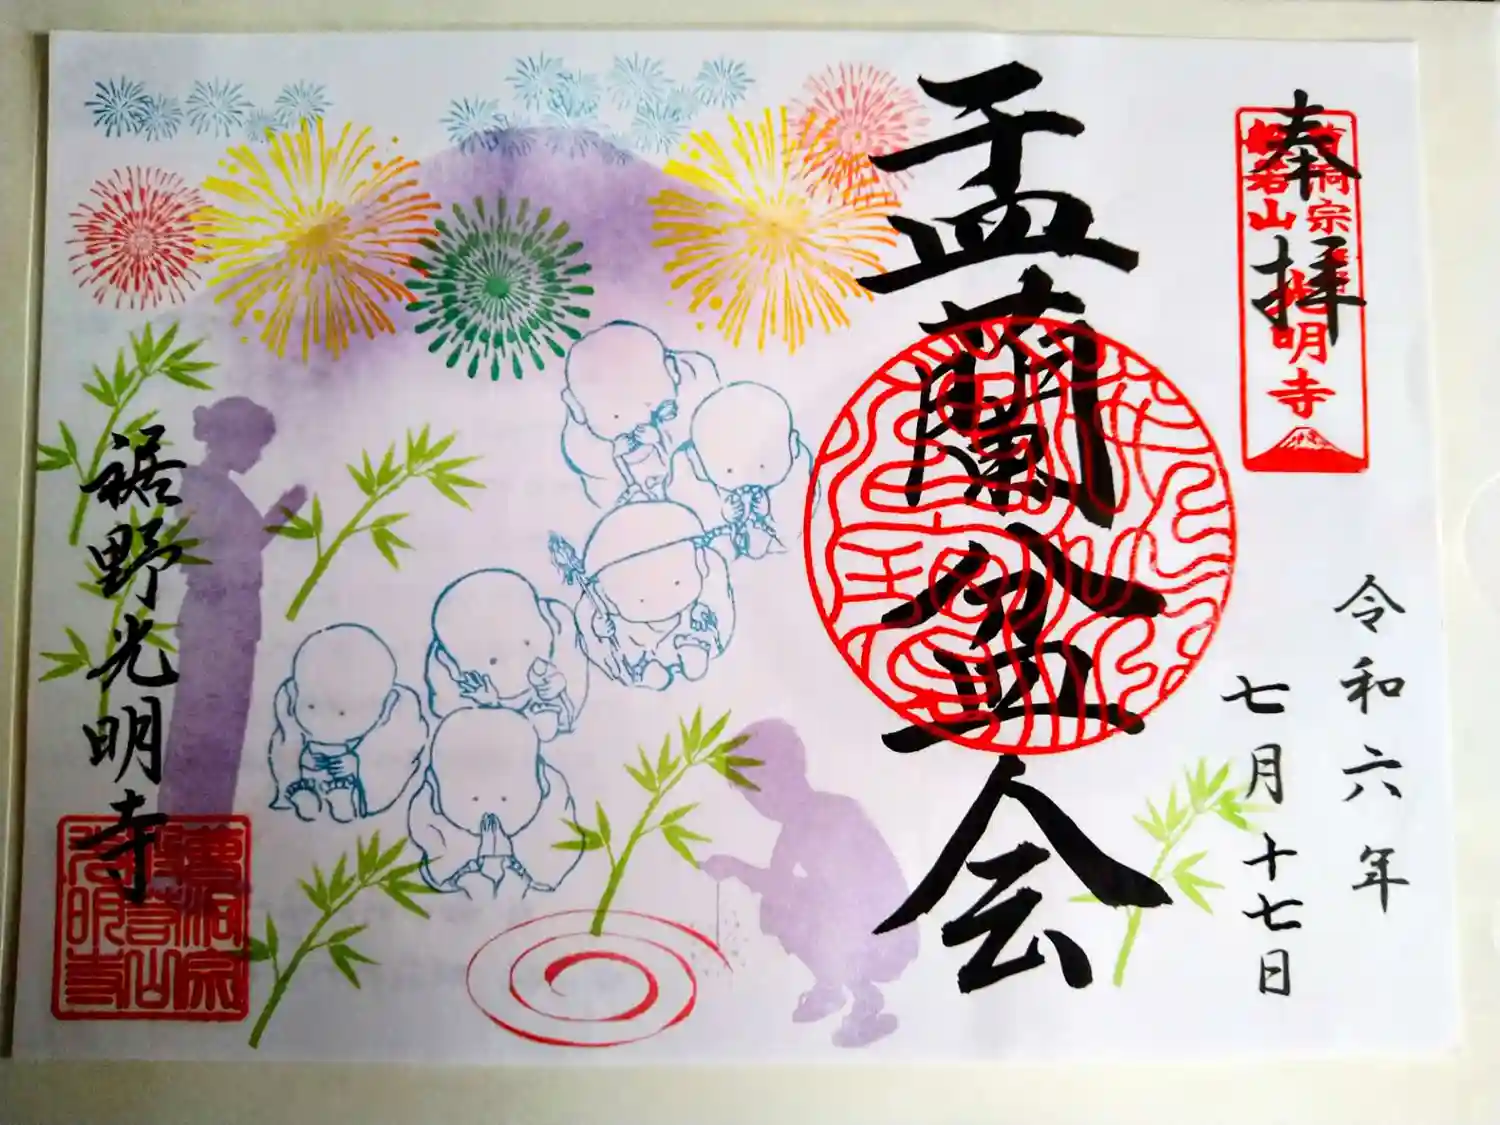 奉拝
曹洞宗
般若山
光明寺
令和六年
七月十七日
盂蘭盆会
裾野光明寺
曹洞宗
般若山
光明寺